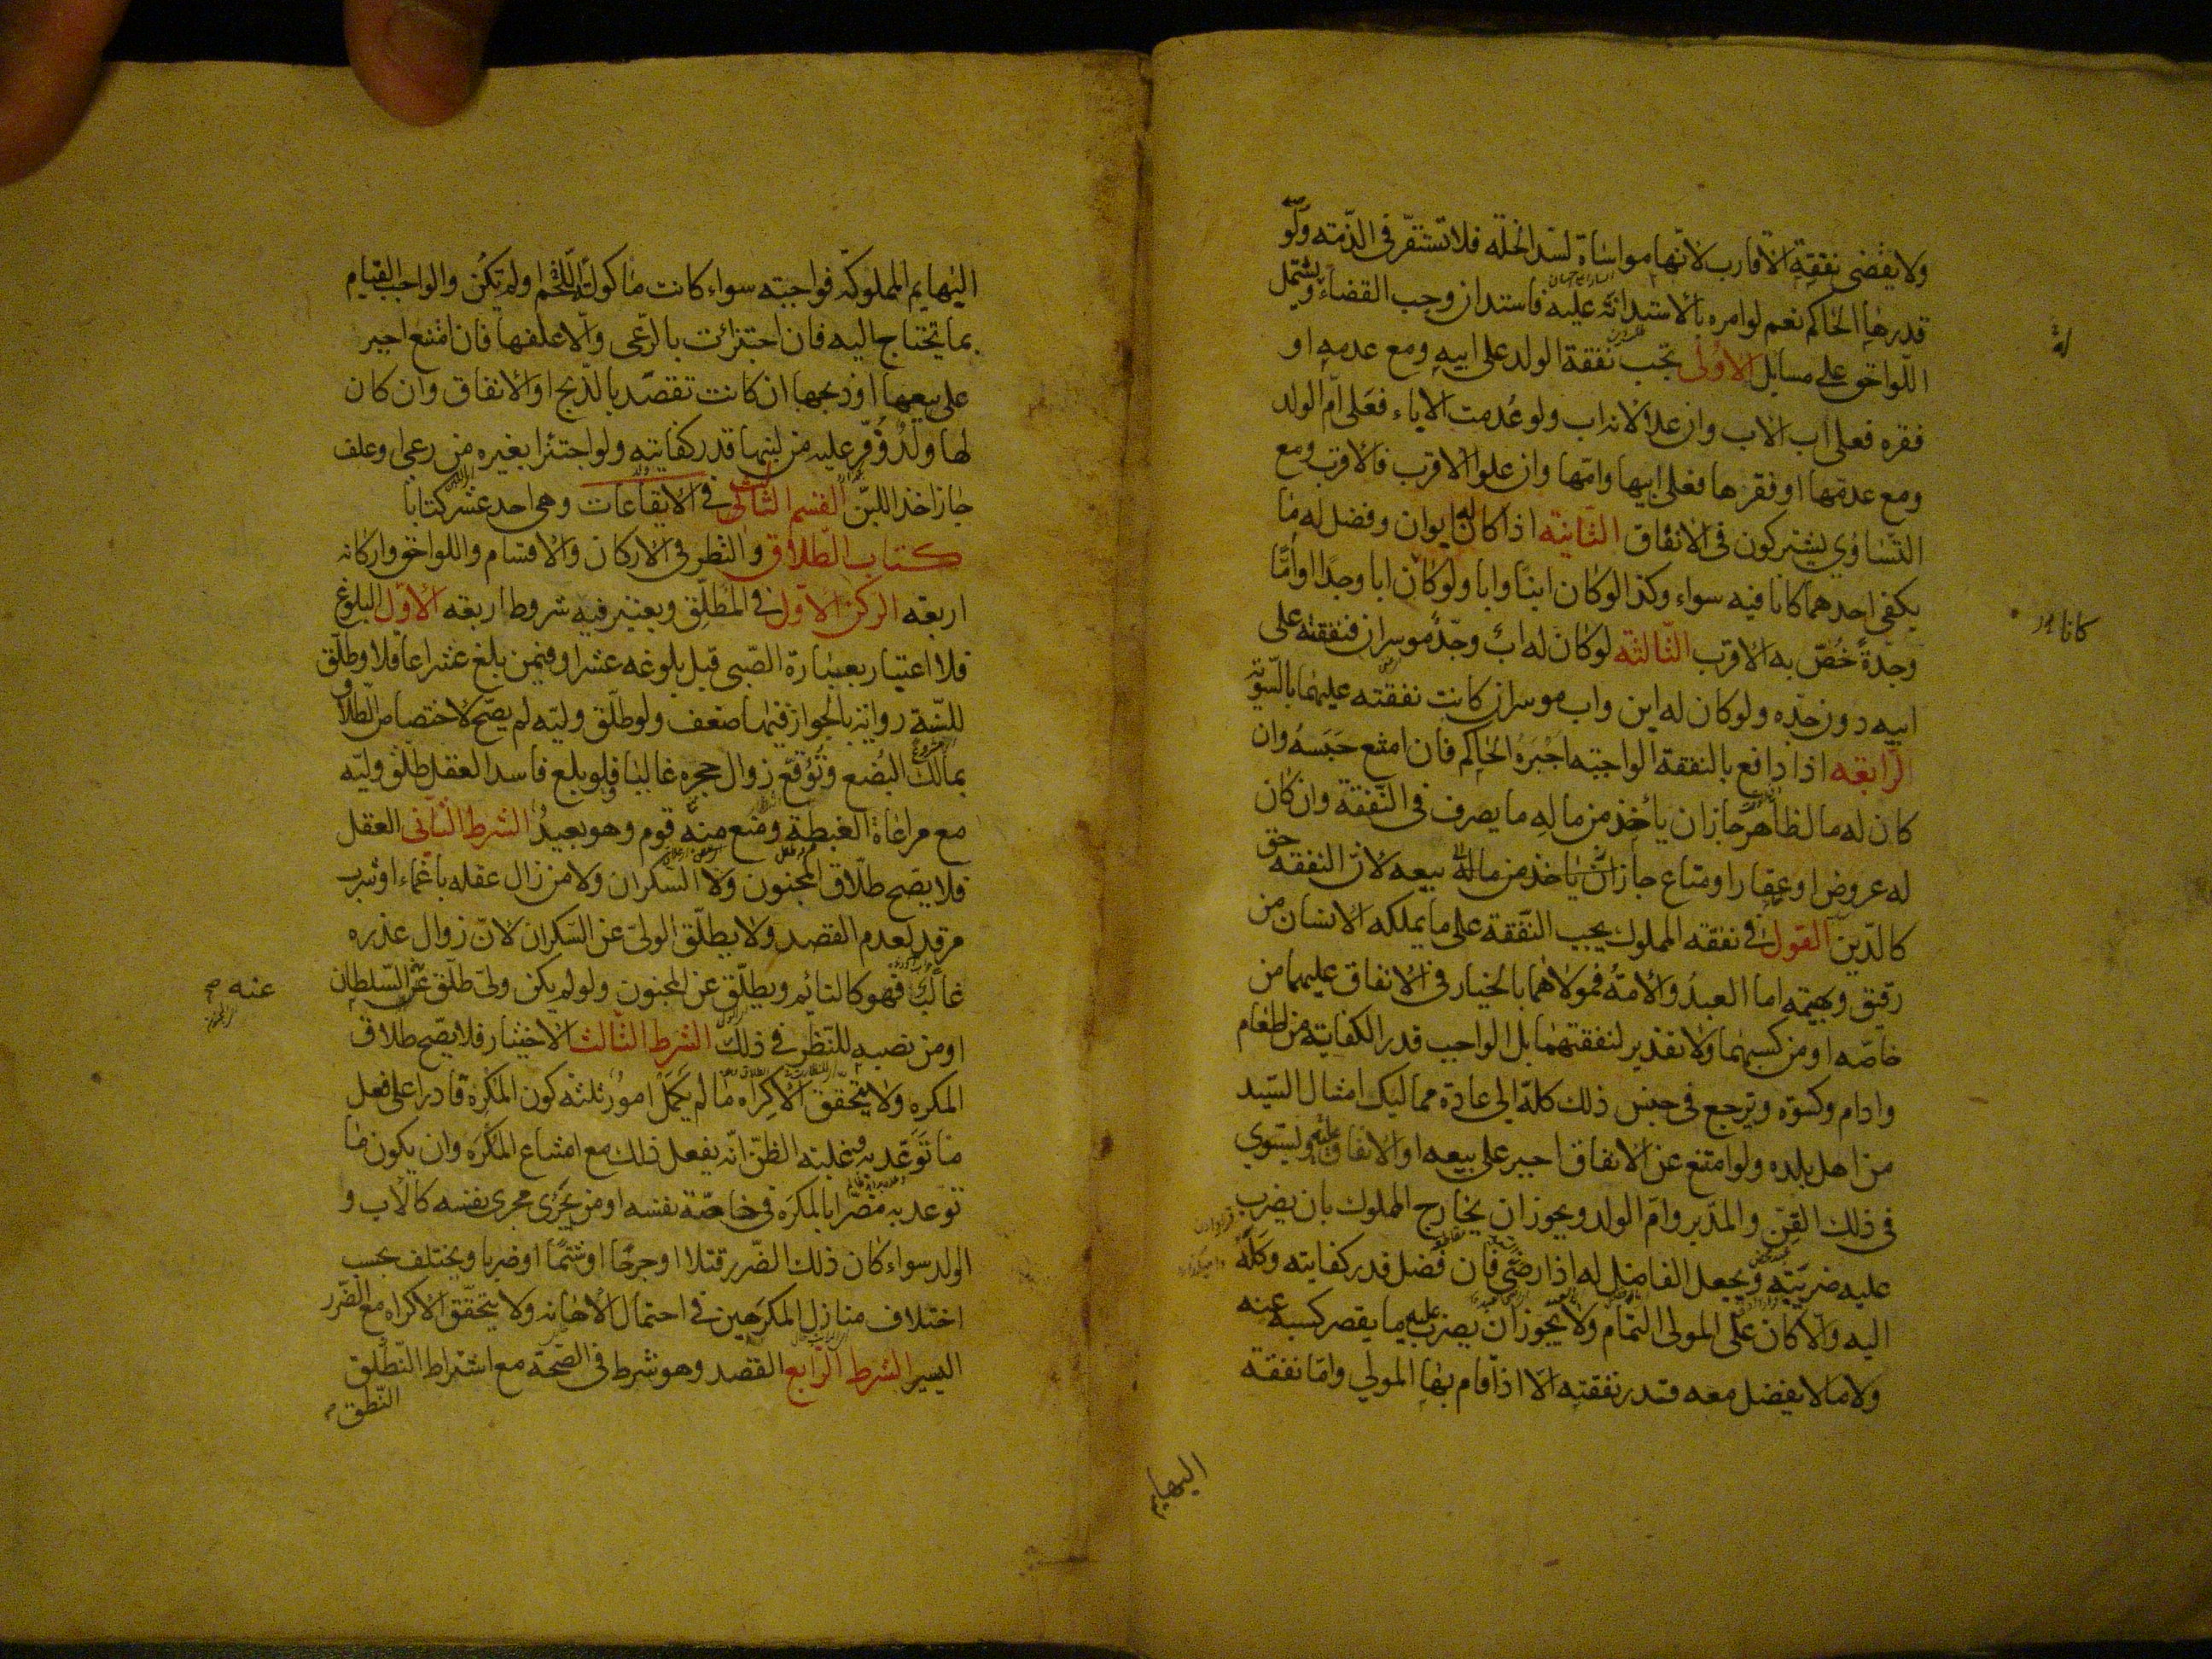 ولا يقضى نفقة الاقارب لانها مواساة لسد الخلة فلا تستقر فى الذمة ولو
قدرها الحاكم نعم لو امره بالاستدانة عليه فاستدان وجب القضاء ويشتمل
اللواحق على مسايل الاولى تجب نفقة الولد على ابيه ومع عدمه او
فقره فعلى اب الاب وان علا لانه اب ولو عدمت الاباء فعلى ام الولد
ومع عدمها او فقرها فعلى ابيها وامها وان علوا الاقرب فالاقرب ومع
التساوي يشتركون فى الانفاق الثانية اذا كان له ابوان وفضل له ما
يكفى احدهما كانا فيه سواء وكذا لو كان ابنا وابا ولو كان ابا وجدا او اما
وجدة خص به الاقرب الثالثة لو كان له اب وجد موسران فنفقته على
ابيه دون جده ولو كان له ابن واب موسران كانت نفقته عليهما بالسوية
الرابعه اذا دافع بالنفقة الواجبه اجبره الحاكم فان امتنع حبسه وان
كان له مال ظاهر جاز ان ياخذ من ماله ما يصرف فى النفقة وان كان
له عروض او عقار او متاع جاز ان ياخذ من ماله بيعه لان النفقة حق
كالدين القول فى نفقه المملوك يجب النفقة على ما يملكه الانسان من
رقيق وبهيمه اما العبد والامة فمولاهما بالخيار فى الانفاق عليهما من
خاصه او من كسبهما ولا تقدير لنفقتهما بل الواجب قدر الكفاية من طعام
وادام وكسوه ويرجع فى جنس ذلك كله الى عادة مماليك امثال السيد
من اهل بلده ولو امتنع عن الانفاق اجبر على بيعه او الانفاق عليه ويستوي
فى ذلك القن والمدبر وام الولد ويجوز ان يخارج المملوك بان يضرب
عليه ضريبة ويجعل الفاضل له اذا رضى فان فضل قدر كفايته وكله
اليه والا كان على المولى التمام ولا يجوز ان يضرب عليه ما يقصر كسبه عنه
ولا ما لا يفضل معه قدر نفقته الا اذا قام بها المولى واما نفقة
البهايم
كانا
البهايم المملوكة فواجبة سواء كانت ماكولة اللحم او لم تكن والواجب القيام
بما تحتاج اليه فان اجتزات بالرعى والا علفها فان امتنع اجبر
على بيعها او ذبحها ان كانت تقصد بالذبح او الانفاق وان كان
لها ولد وفر عليه من لبنها قدر كفايته ولو اجتزا بغيره من رعى او علف
جاز اخذ اللبن القسم الثالث فى الايقاعات وهى احد عشر كتابا
كتاب الطلاق والنظر فى الاركان والاقسام واللواحق واركانه
اربعه الركن الاول فى المطلق ويعتبر فيه شروط اربعه الاول البلوغ
فلا اعتبار بعبارة الصبى قبل بلوغه عشرا وفيمن بلغ عشرا عاقلا وطلق
للسنة رواية بالجواز فيها ضعف ولو طلق وليه لم يصح لاختصاص الطلاق
بمالك البضع وتوقع زوال حجره غالبا فلو بلغ فاسد العقل طلق وليه
مع مراعاة الغبطة ومنع منه قوم وهو بعيد الشرط الثانى العقل
فلا يصح طلاق المجنون ولا السكران ولا من زال عقله باغماء او شرب
مرقد لعدم القصد ولا يطلق الولى عن السكران لان زوال عذره
غالب فهو كالنائم ويطلق عن المجنون ولو لم يكن ولى طلق عنه السلطان
عنه صح
او من نصبه للنظر فى ذلك الشرط الثالث الاختيار فلا يصح طلاق
المكره ولا يتحقق الاكراه ما لم يكمل امور ثلثة كون المكره قادرا على فعل
ما توعد به وغلبة الظن انه يفعل ذلك مع امتناع المكره وان يكون ما
توعد به مضرا بالمكره فى خاصة نفسه او من يجرى مجرى نفسه كالاب و
الولد سواء كان ذلك الضرر قتلا او جرحا او شتما او ضربا ويختلف بحسب
اختلاف منازل المكرهين فى احتمال الاهانه ولا يتحقق الاكراه مع الضرر
اليسير الشرط الرابع القصد وهو شرط فى الصحة مع اشتراط النطق
النطق